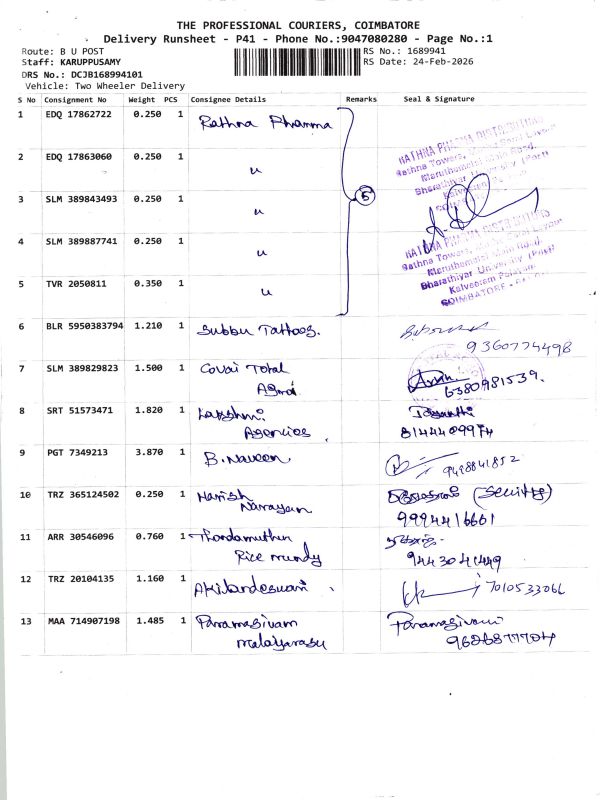 THE PROFESSIONAL COURIERS, COIMBATORE
Delivery Runsheet - P41 - Phone No.:9047080280 - Page No.:1
Route: B U POST
RS No.: 1689941
Staff: KARUPPUSAMY
RS Date: 24-Feb-2026
DRS No.: DCJB168994101
Vehicle: Two Wheeler Delivery
S No Consignment No Weight PCS Consignee Details Remarks Seal & Signature
1 EDQ 17862722 0.250 1 Rathna Pharma
RATHNA PHARMA DISTRIBUTORS
Rathna Towers,
Maruthamalai Main Road,
Bharathiyar University (Post)
2 EDQ 17863060 0.250 1 "
3 SLM 389843493 0.250 1 " 5
4 SLM 389887741 0.250 1 "
RATHNA PHARMA DISTRIBUTORS
Rathna Towers,
Maruthamalai Main Road,
Bharathiyar University (Post)
Kalveeram Palayam
COIMBATORE
5 TVR 2050811 0.350 1 "
6 BLR 5950383794 1.210 1 Subbu Tattoos.
9360774498
7 SLM 389829823 1.500 1 Covai Total
Agro
6380981539.
8 SRT 51573471 1.820 1 Lakshmi
Agencies
8144409974
9 PGT 7349213 3.870 1 B. Naveen
9498841852
10 TRZ 365124502 0.250 1 Harish
Narayan
(Security)
9994416661
11 ARR 30546096 0.760 1 Thondamuthur
Rice mundy
9443041449
12 TRZ 20104135 1.160 1 Akilandeswari
7010533066
13 MAA 714907198 1.485 1 Paramasivam
Malaiyarasu
Paramasivam
9626877704